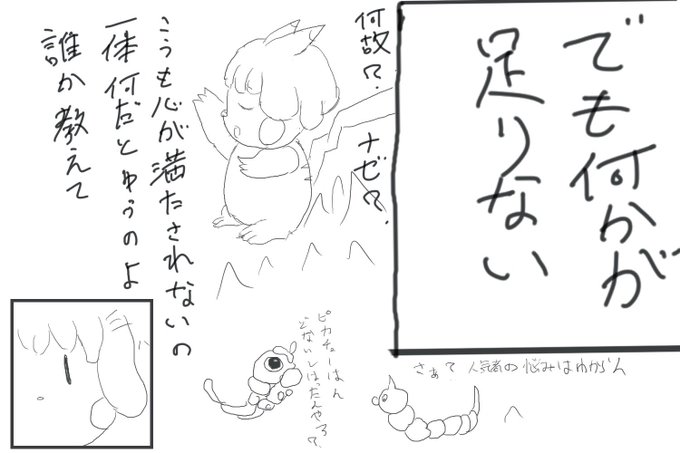 でも何かが
足りない
何故?ナゼ?
こうも心が満たされないの
一体何だとゆうのよ
誰か教えて
ピカチューはん
どないしはったんやろ?
さぁて人気者の悩みはわからん